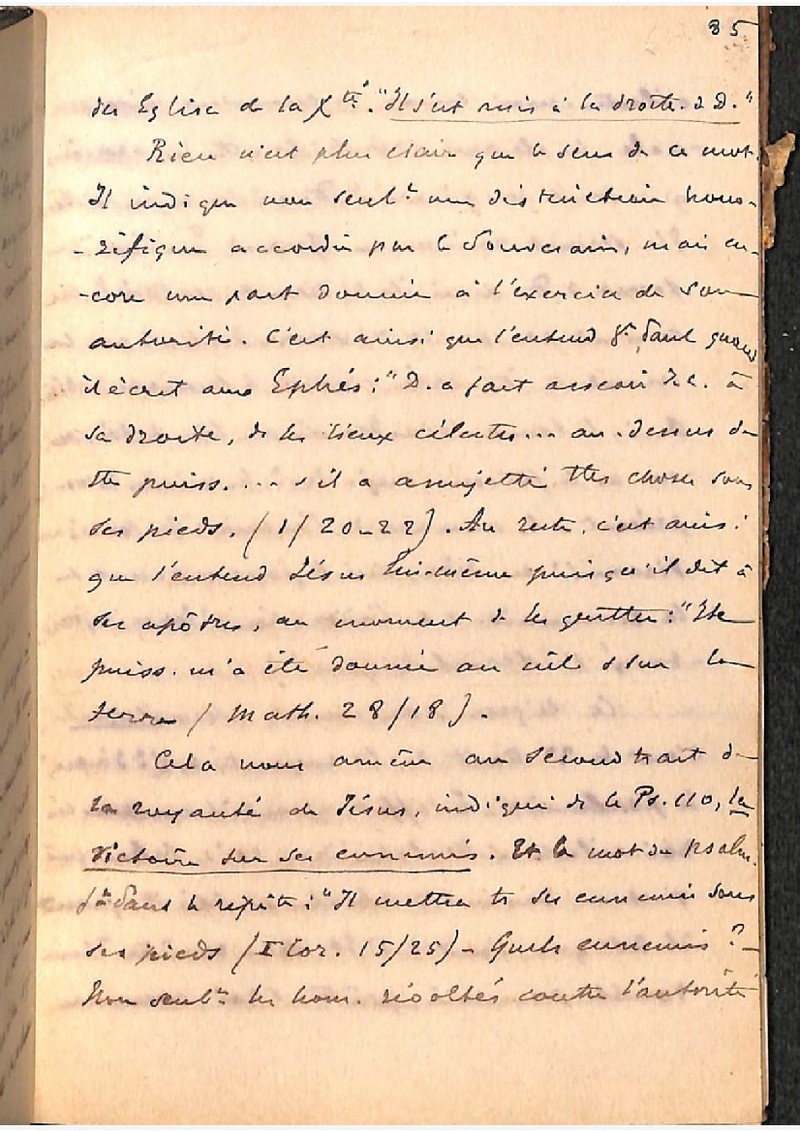 35
des Eglise de la Xté. "Il s'est mis à la droite de D."
Rien n'est plus clair que le sens de ce mot.
Il indique non seult une distinction hono-
-rifique accordée par le Souverain, mais en-
-core une part donnée à l'exercice de son
autorité. C'est ainsi que l'entend St Paul quand
il écrit aux Ephés: "D. a fait asseoir J.C. à
sa droite, ds les lieux célestes... au-dessus de
tte puiss. ... & il a assujetti ttes choses sous
ses pieds. (1/20-22). Au reste, c'est ainsi
que l'entend Jésus lui-même puisqu'il dit à
ses apôtres, au moment de les quitter: "Tte
puiss. m'a été donnée au ciel & sur la
terre (Math. 28/18).
Cela nous amène au second trait de
la royauté de Jésus, indiqué ds le Ps. 110, la
victoire sur ses ennemis. Et le mot du psalm.
St Paul le répète: "Il mettra ts ses ennemis sous
ses pieds (I Cor. 15/25) - Quels ennemis ? -
Non seult les hom. révoltés contre l'autorité